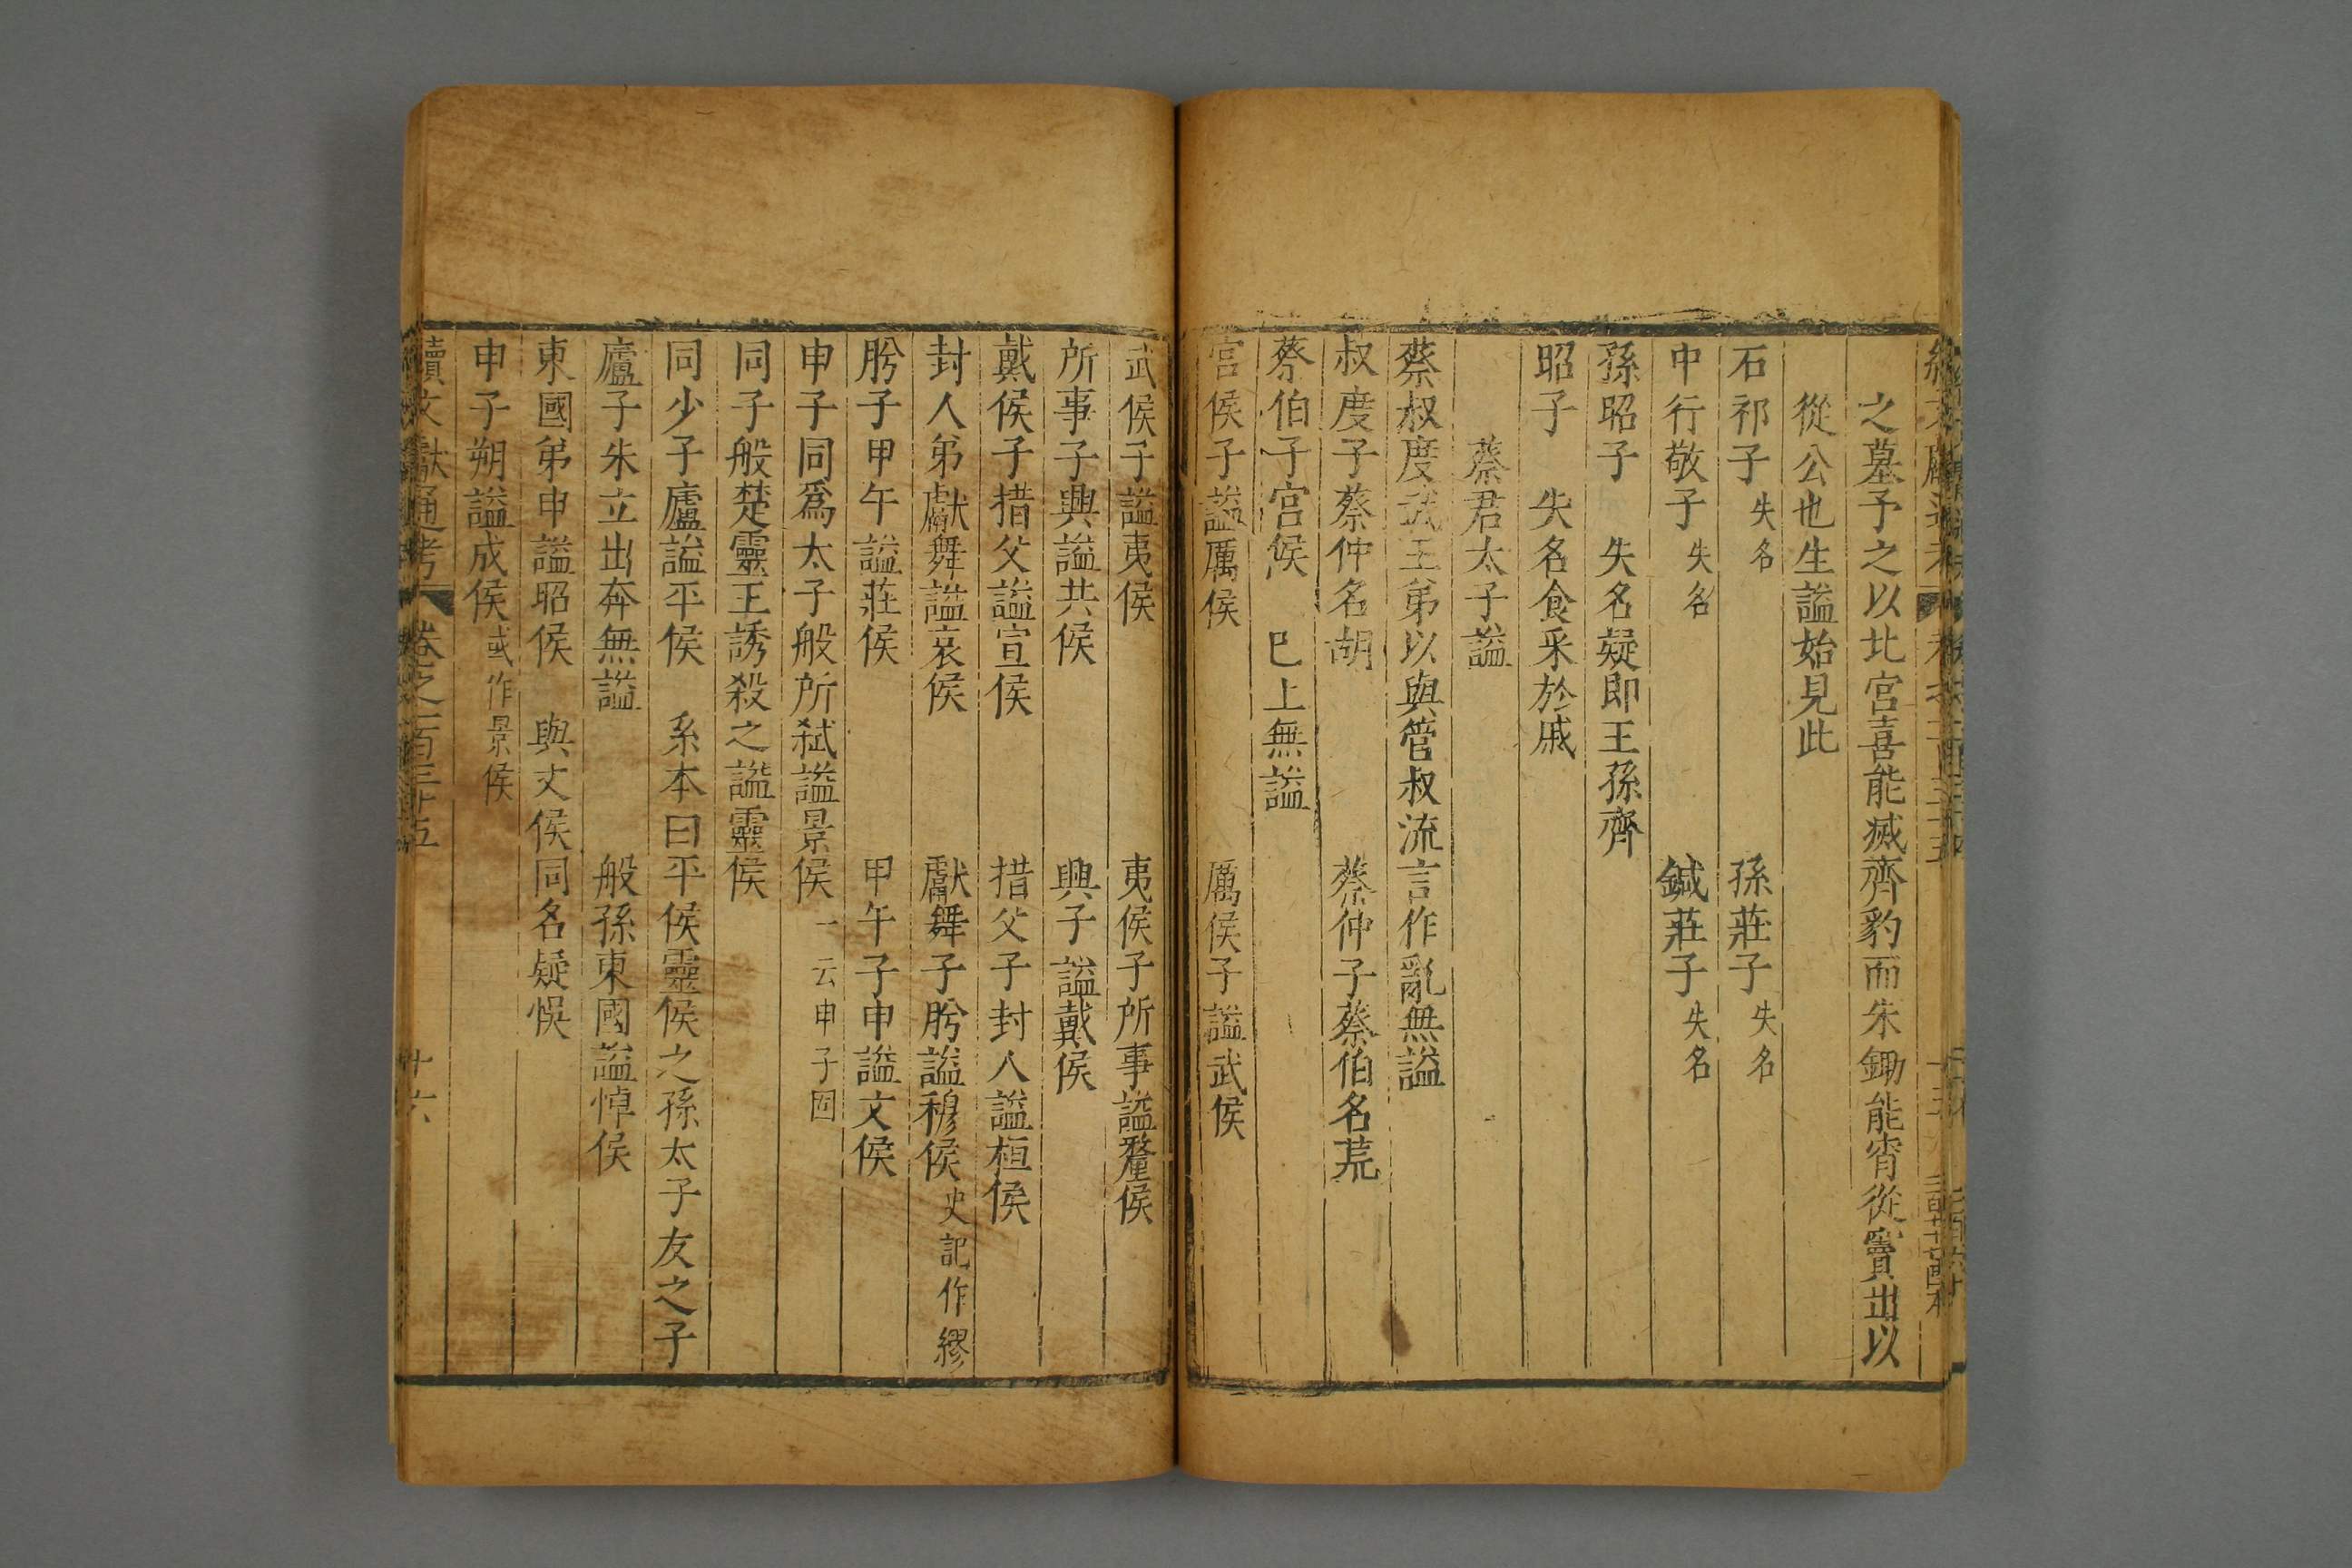 之墓予之以北宮喜能滅齊豹而朱鋤能宵從竇出以
從公也生謚始見此
石祁子失名 孫莊子失名
中行敬子失名 鍼莊子失名
孫昭子 失名疑即王孫齊
昭子 失名食采於戚
蔡君太子謚
蔡叔度武王弟以與管叔流言作亂無謚
叔度子蔡仲名胡 蔡仲子蔡伯名荒
蔡伯子宮侯 巳上無謚
宮侯子謚厲侯 厲侯子謚武侯
武侯子謚夷侯 夷侯子所事謚釐侯
所事子興謚共侯 興子謚戴侯
戴侯子措父謚宣侯 措父子封人謚桓侯
封人弟獻舞謚哀侯 獻舞子肹謚穆侯史記作繆
肹子甲午謚莊侯 甲午子申謚文侯
申子同爲太子般所弑謚景侯一云申子固
同子般楚靈王誘殺之謚靈侯
同少子廬謚平侯 系本曰平侯靈侯之孫太子友之子
廬子朱立出奔無謚 般孫東國謚悼侯
東國弟申謚昭侯 與文侯同名疑悞
申子朔謚成侯或作景侯
續文獻通考 卷之一百三十五 廿六